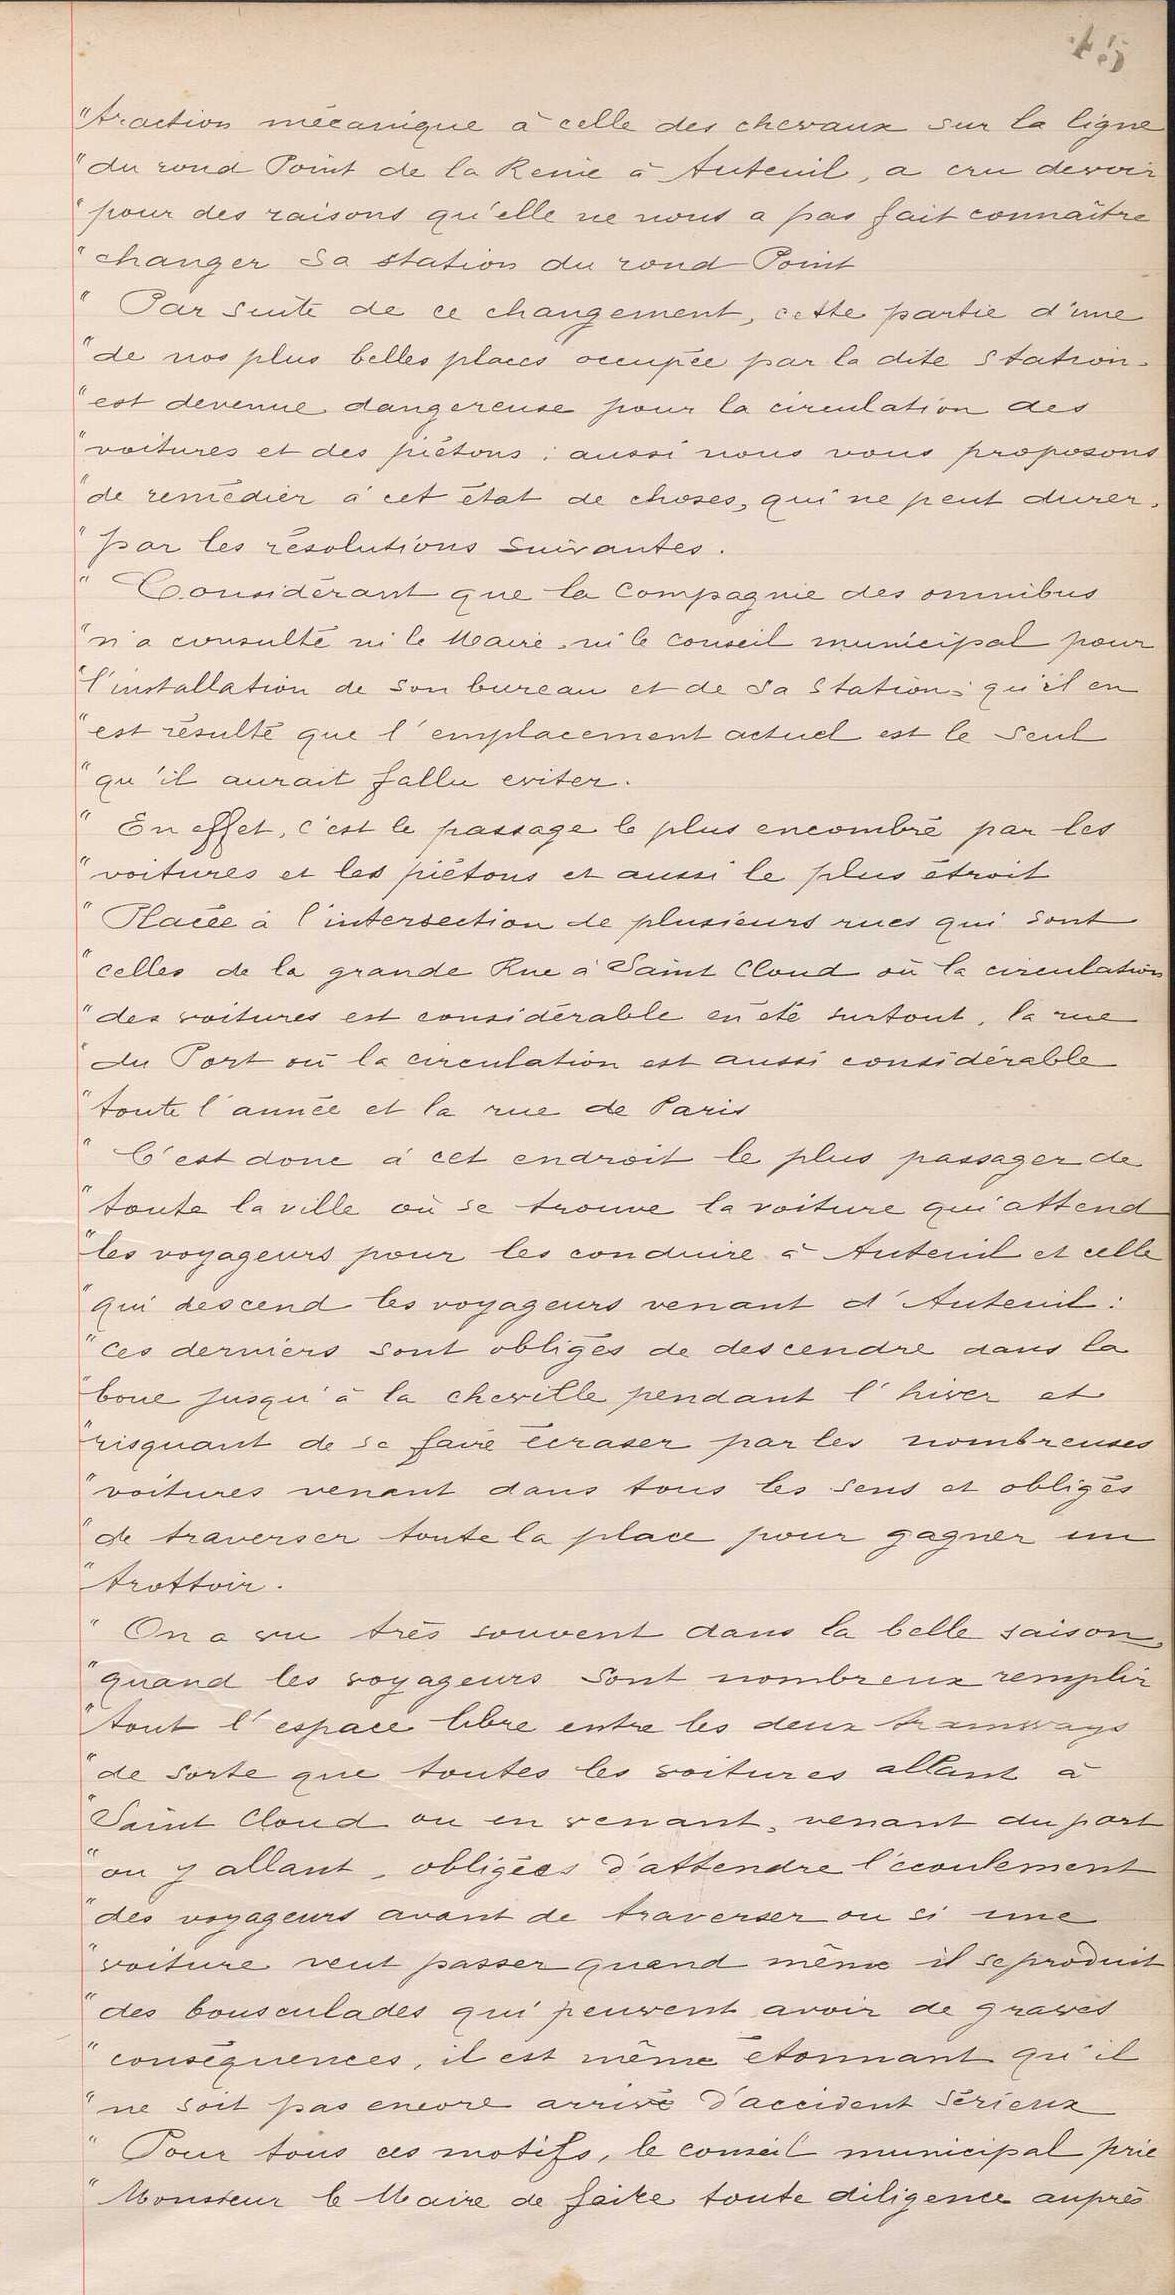 45
"traction mécanique à celle des chevaux sur la ligne
"du rond Point de la Reine à Auteuil, a cru devoir
"pour des raisons qu'elle ne nous a pas fait connaître
"changer sa station du rond Point
" Par suite de ce changement, cette partie d'une
"de nos plus belles places occupée par la dite station.
"est devenue dangereuse pour la circulation des
"voitures et des piétons ; aussi nous vous proposons
"de remédier à cet état de choses, qui ne peut durer,
"par les résolutions suivantes.
" Considérant que la Compagnie des omnibus
"n'a consulté ni le Maire, ni le Conseil municipal pour
"l'installation de son bureau et de sa station ; qu'il en
"est résulté que l'emplacement actuel est le seul
"qu'il aurait fallu eviter.
" En effet, c'est le passage le plus encombré par les
"voitures et les piétons et aussi le plus étroit
" Placée à l'intersection de plusieurs rues qui sont
"celles de la grande Rue à Saint Cloud où la circulation
"des voitures est considérable en été surtout, la rue
"du Port où la circulation est aussi considérable
"toute l'année et la rue de Paris
" C'est donc à cet endroit le plus passager de
"toute la ville où se trouve la voiture qui attend
"les voyageurs pour les conduire à Auteuil et celle
"qui descend les voyageurs venant d'Auteuil :
"ces derniers sont obligés de descendre dans la
"boue jusqu'à la cheville pendant l'hiver et
"risquant de se faire écraser par les nombreuses
"voitures venant dans tous les sens et obligés
"de traverser toute la place pour gagner un
"trottoir.
" On a vu très souvent dans la belle saison,
"quand les voyageurs sont nombreux remplir
"tout l'espace libre entre les deux tramways
"de sorte que toutes les voitures allant à
"Saint Cloud ou en venant, venant du port
"ou y allant, obligées d'attendre l'écoulement
"des voyageurs avant de traverser ou si une
"voiture veut passer quand même il se produit
"des bousculades qui peuvent avoir de graves
"conséquences, il est même étonnant qu'il
"ne soit pas encore arrivé d'accident sérieux
" Pour tous ces motifs, le conseil municipal prie
"Monsieur le Maire de faire toute diligence auprès